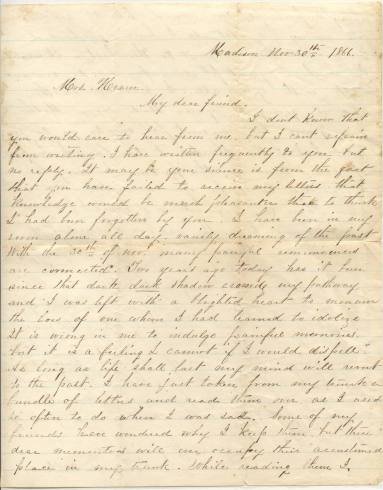 Madison Nov 30th 1866.
Mrs.
My dear friend.
I dont know that
you would care to hear from me, but I cant refrain
from writing. I have written frequently to you but
no reply. It may be your silence is from the fact
that you have failed to receive my letters that
knowledge would be much pleasanter than to think
I had been forgotten by you. I have been in my
room alone all day vainly dreaming of the past
With the 30th of Nov. many painful reminiscences
are connected. Two years ago today has it been
since that dark dark shadow crossed my pathway
and I was left with a blighted heart to mourn
the loss of one whom I had learned to idolize
It is wrong in me to indulge painful memories.
but it is a feeling I cannot if I would dispell.
As long as life shall last my mind will revert
to the past. I have just taken from my trunk a
bundle of letters and read them over as I used
so often to do when I was sad. Some of my
friends have wondered why I keep them, but these
dear mementoes will ever occupy their accustomed
place in my trunk. While reading them I